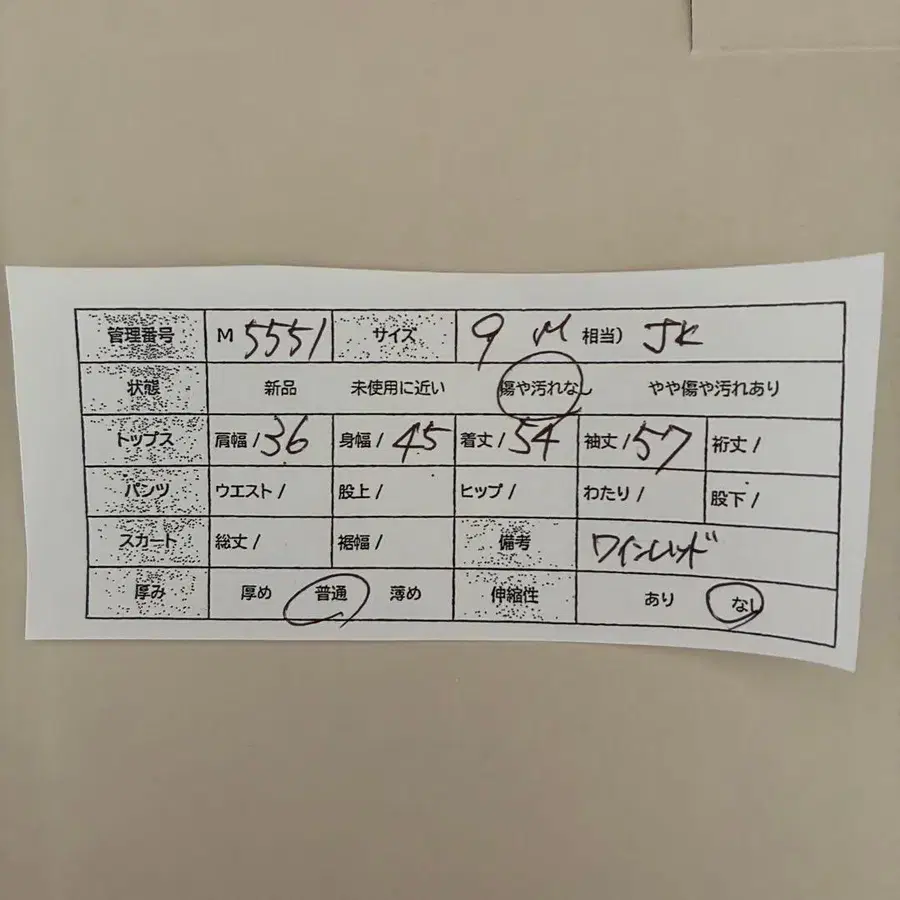 管理番号 M 5551 サイズ 9 M 相当) JK
状態 新品 未使用に近い 傷や汚れなし やや傷や汚れあり
トップス 肩幅/36 身幅/45 着丈/54 袖丈/57 裄丈/
パンツ ウエスト/ 股上/ ヒップ/ わたり/ 股下/
スカート 総丈/ 裾幅/ 備考 ワインレッド
厚み 厚め 普通 薄め 伸縮性 あり なし